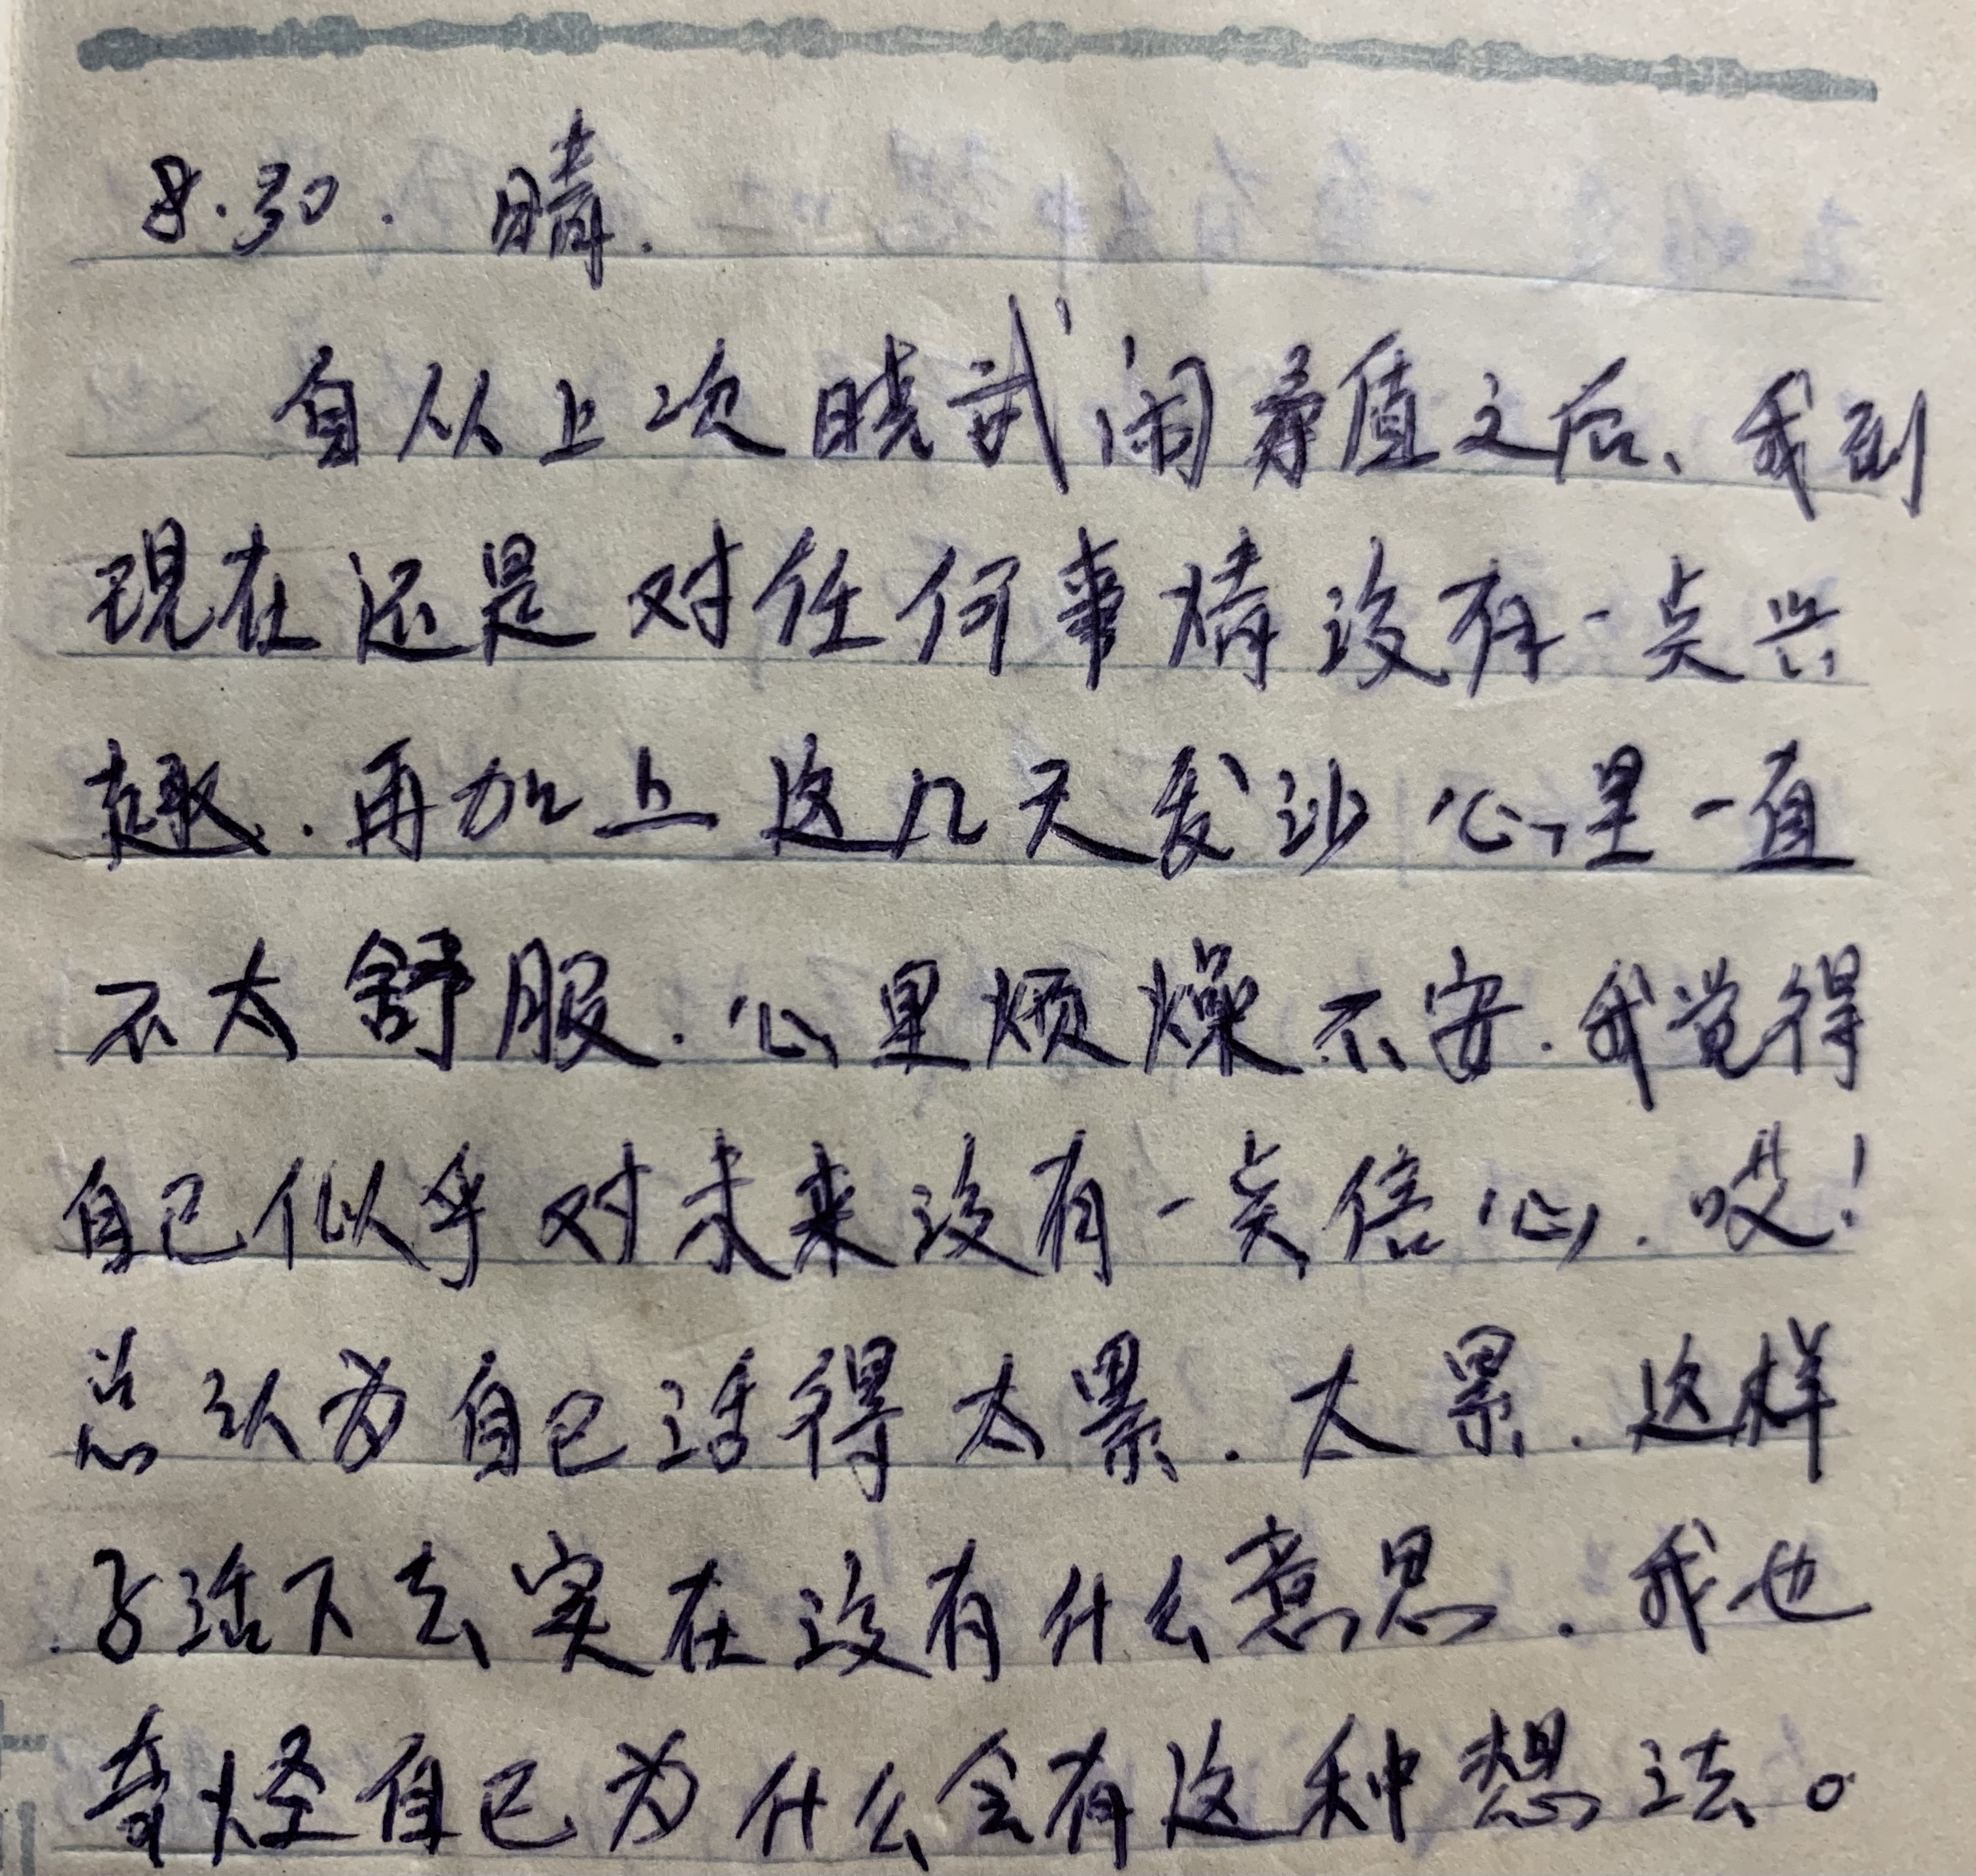 8.30. 晴.
自从上次晓武闹矛值之后、我到
现在还是对任何事情没有一点兴
趣.再加上这几天发沙心里一直
不太舒服.心里烦燥不安.我觉得
自己似乎对未来没有一点信心.哎!
总认为自己活得太累.太累.这样
子活下去实在没有什么意思.我也
奇怪自己为什么会有这种想法。